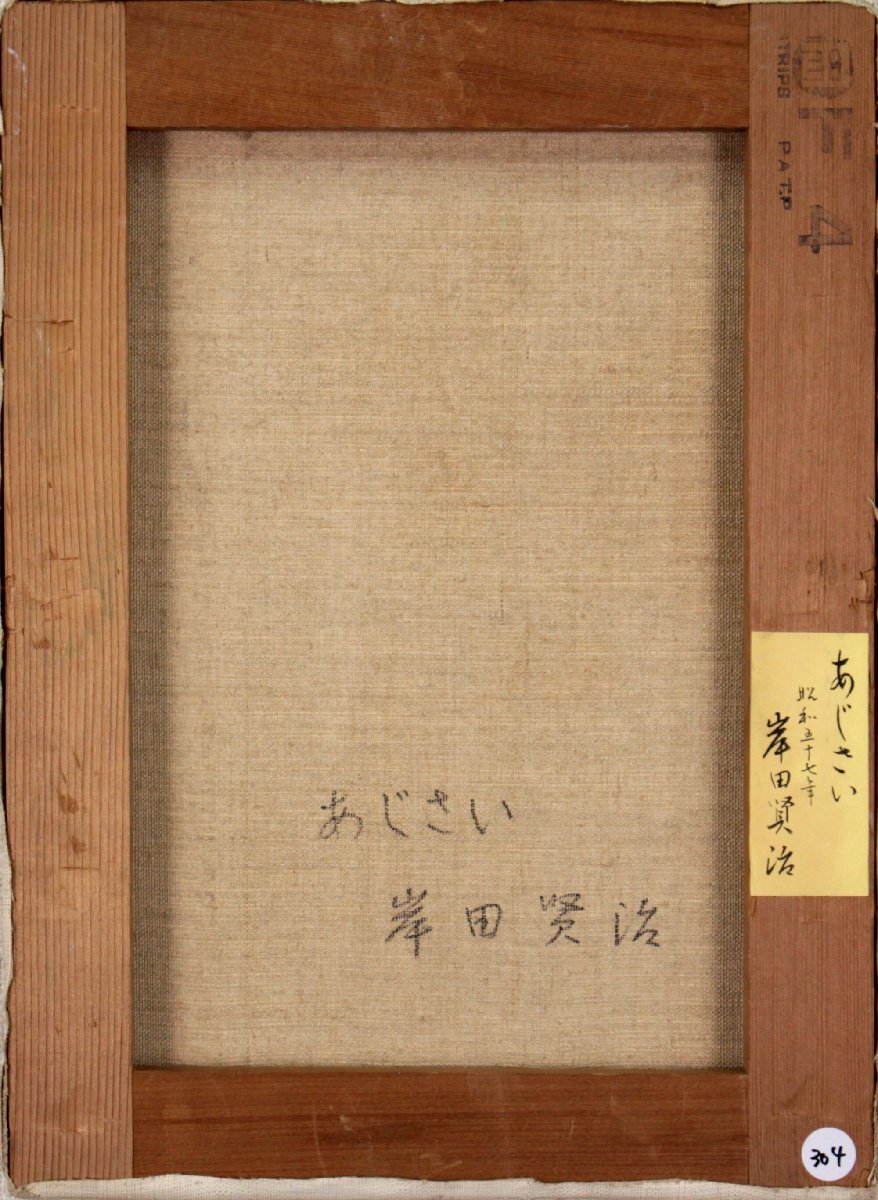 あじさい
岸田賢治
あじさい
昭和五十七年
岸田賢治
TRIPS PAT.P
F 4
304